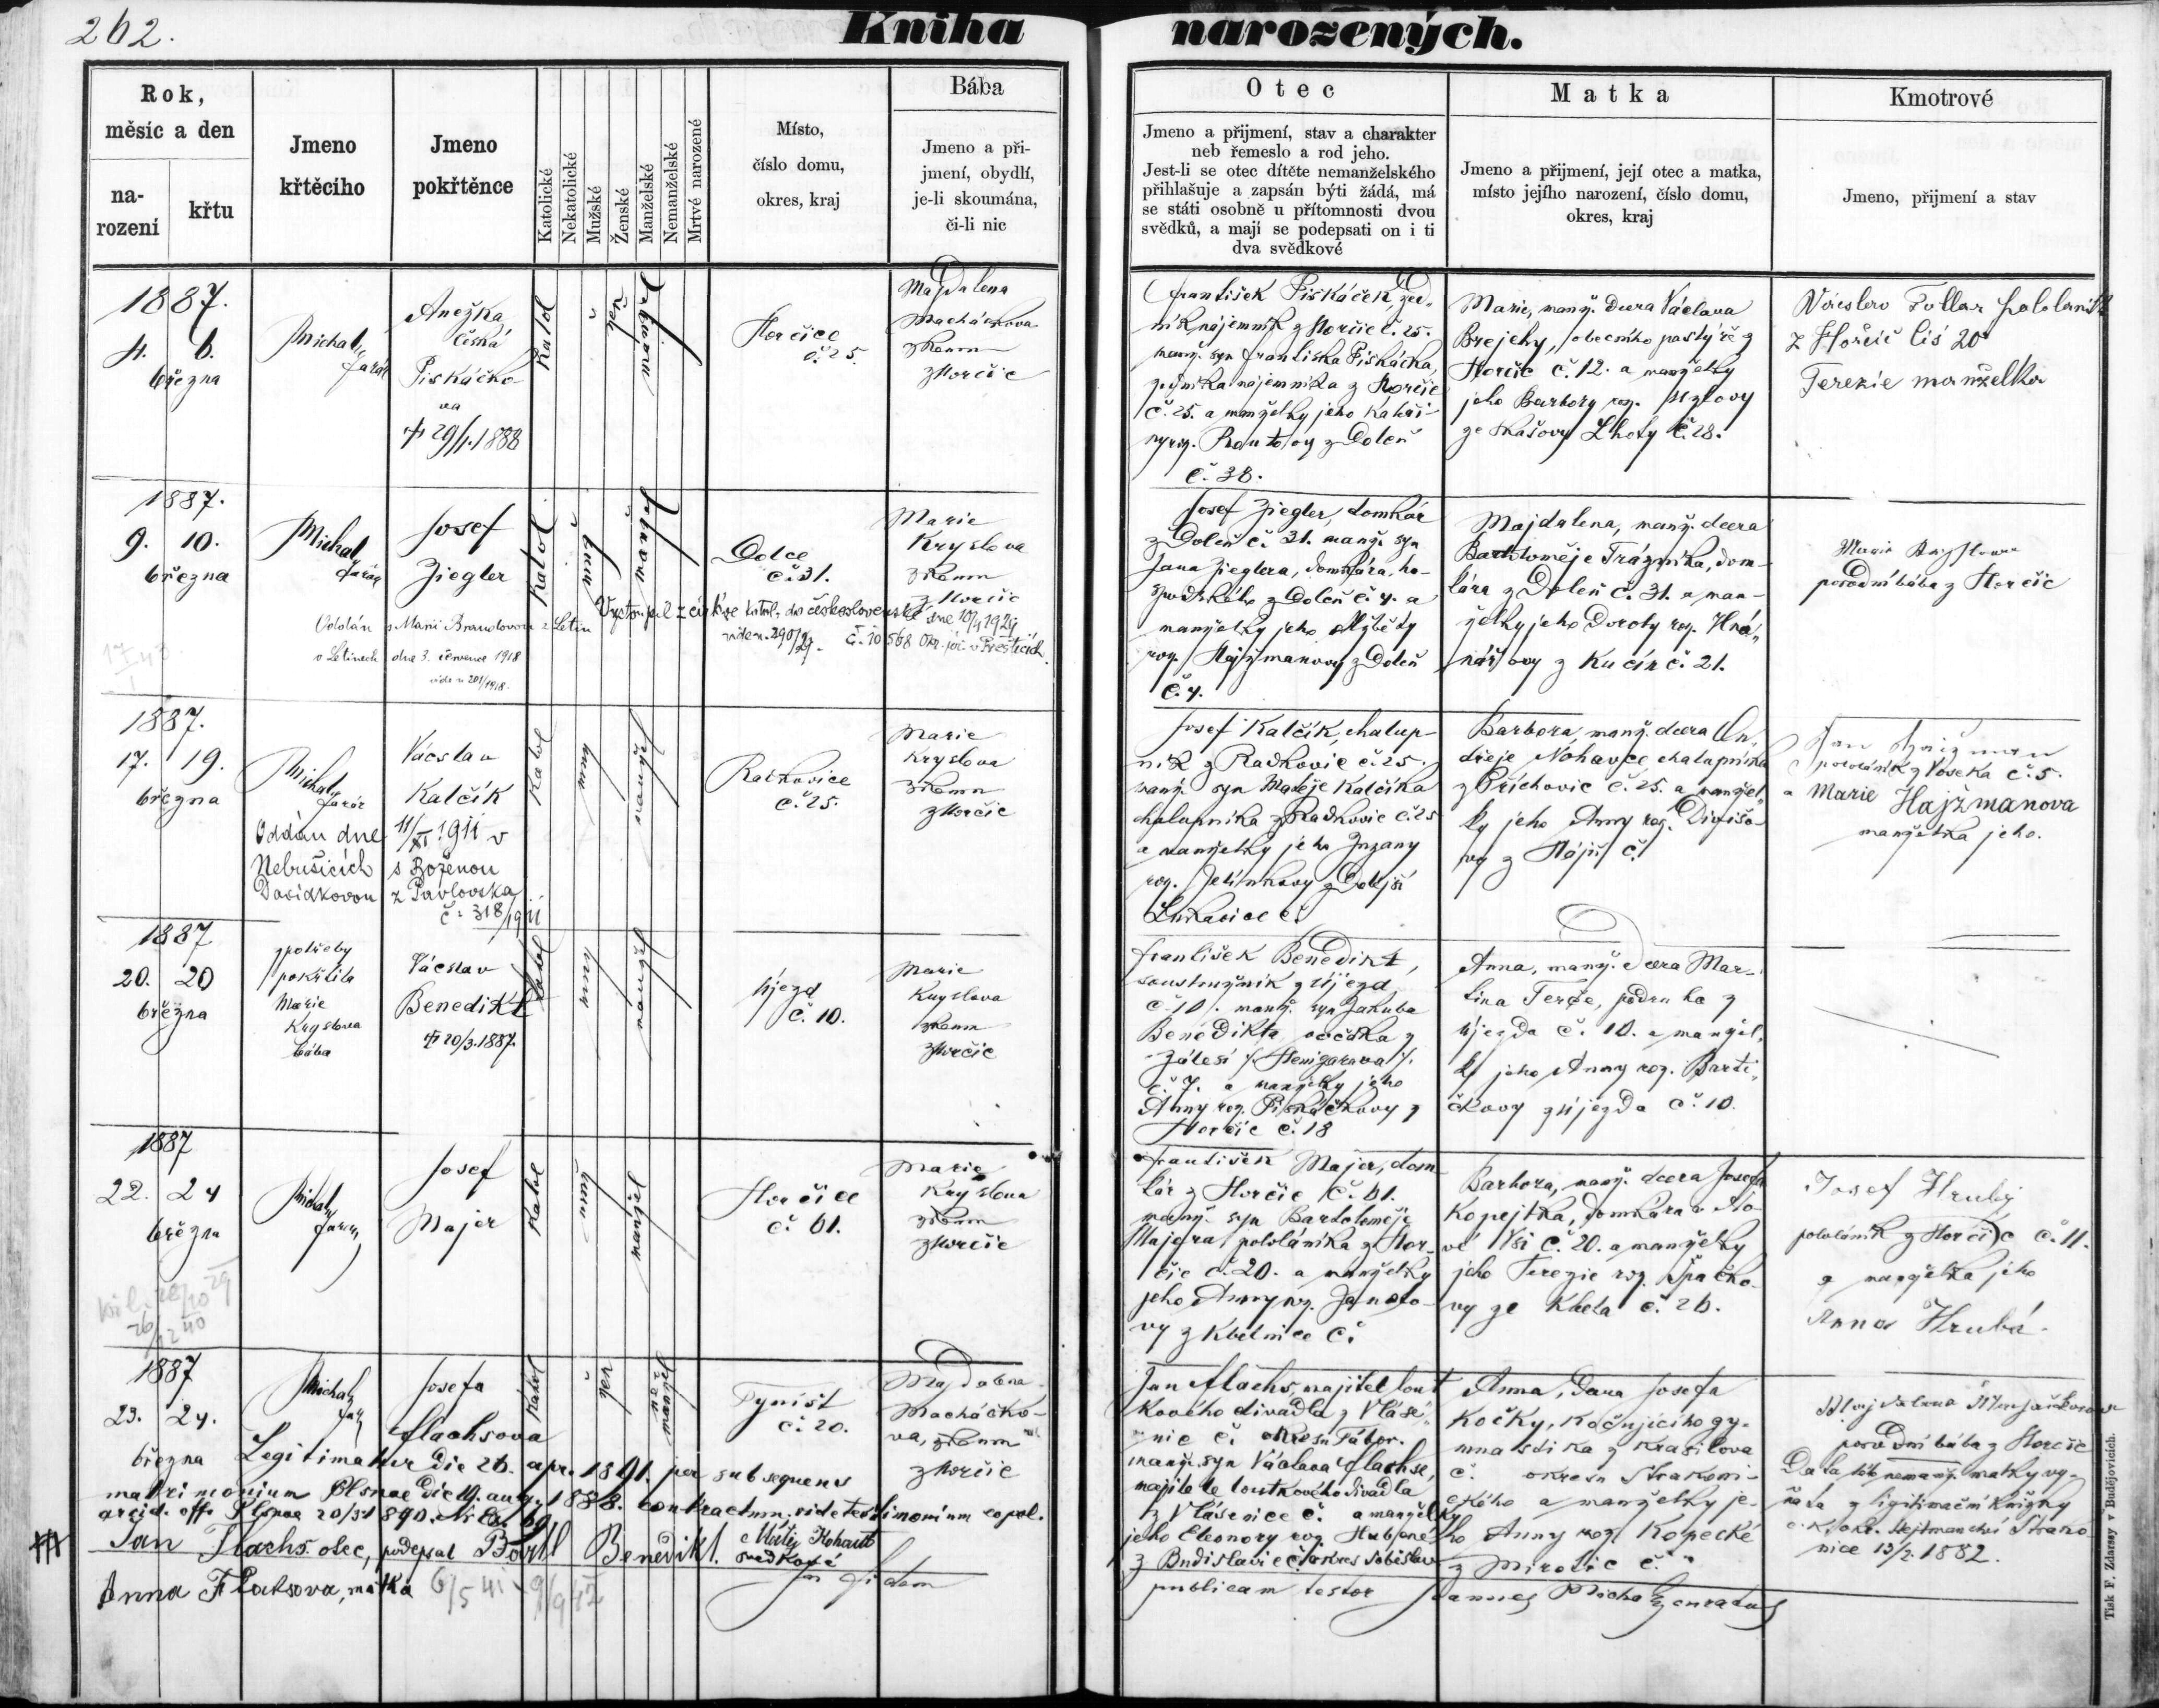 262.
Kniha narozených.
Rok,
měsíc a den
na-
rození
křtu
Jmeno
křtěcího
Jmeno
pokřtěnce
Katolické
Nekatolické
Mužské
Ženské
Manželské
Nemanželské
Mrtvé narozené
Místo,
číslo domu,
okres, kraj
Bába
Jmeno a při-
jmení, obydlí,
je-li skoumána,
či-li nic
Otec
Jmeno a přijmení, stav a charakter
neb řemeslo a rod jeho.
Jest-li se otec dítěte nemanželského
přihlašuje a zapsán býti žádá, má
se státi osobně u přítomnosti dvou
svědků, a mají se podepsati on i ti
dva svědkové
Matka
Jmeno a přijmení, její otec a matka,
místo jejího narození, číslo domu,
okres, kraj
Kmotrové
Jmeno, přijmení a stav
1887.
4. 6.
března
Michal
farář
Anežka
česká
Piskáčko-
va
† 29/1. 1888
Katol
Horčice
č. 25.
Magdalena
Macháčkova
zkoum
z Horčic
František Piskáček, zed-
ník nájemník z Horčic č. 25.
manž. syn Františka Piskáčka,
zedníka nájemníka z Horčic
č. 25. a manželky jeho Kateři-
ny roz. z Dolec
č. 38.
Marie, manž. dcera Václava
Brejchy, obecního pastýře z
Horčic č. 12. a manželky
jeho Barbory roz.
ze Skašovy Lhoty č. 28.
Václav Follar pololaník
z Hořčic čís 20
Terezie manželka
1887.
9. 10.
března
Michal
farář
Josef
Ziegler
Katol
Dolce
č. 31.
Marie
Kryslova
zkoum
z Horčic
Oddán s Marií Brandlovou z Letin
v Letinech dne 3. července 1918
vide n 201/1918.
Vystoupil z církve katol. do československé dne 10/4 1929
viz čn. 290/29. č. 10568 Okr. pol. v Přešticích.
Josef Ziegler, domkář
z Dolec č. 31. manž. syn
Jana Zieglera, domkáře, ho-
spodského z Dolec č. 4. a
manželky jeho Alžběty
roz. Hajžmanovy z Dolec
č. 4.
Majdalena, manž. dcera
Bartoloměje Trázníka, dom-
káře z Dolec č. 31. a man-
želky jeho Doroty roz. Hná-
nářovy z Kucín č. 21.
Marie Kryslova
porodní bába z Horčic
1887.
17. 19.
března
Michal
farář
Václav
Kalčík
Katol
Radkovice
č. 25.
Marie
Kryslova
zkoum
z Horčic
Oddán dne 11/XI 1911 v
Nebušicích s Boženou
Davídkovou z Pavlovska
č. 318/1911
Josef Kalčík, chalup-
ník z Radkovic č. 25.
manž. syn Matěje Kalčíka
chalupníka z Radkovic č. 25
a manželky jeho Zuzany
roz. Jelínkovy z Dolejší
Lukavice č.
Barbora, manž. dcera On-
dřeje Nohavce, chalupníka
z Příchovic č. 25. a manžel-
ky jeho Anny roz. Divišo-
vy z Háje č.
Jan Hajžman
pololáník z Voseka č. 5.
a Marie Hajžmanova
manželka jeho.
1887
20. 20
března
z potřeby
pokřtila
Marie
Kryslova
bába
Václav
Benedikt
† 20/3. 1887.
Katol
Újezd
č. 10.
Marie
Kryslova
zkoum
z Horčic
František Benedikt,
soustružník z Újezda
č. 10. manž. syn Jakuba
Benedikta, ovčáka z
Zálesí
č. 7. a manželky jeho
Anny roz. Piskáčkovy z
Horčic č. 18
Anna, manž. dcera Mar-
tina Terče, podruha z
Újezda č. 10. a manžel-
ky jeho Anny roz. Barti-
čkovy z Újezda č. 10.
1887
22. 24
března
Michal
farář
Josef
Majer
Katol
manžel
Horčice
č. 61.
Marie
Kryslova
zkoum
z Horčic
František Majer, dom-
kář z Horčic č. 61.
manž. syn Bartoloměje
Majera, pololáníka z Hor-
čic č. 20. a manželky
jeho Anny roz. Janoto-
vy z Kbelnice č.
Barbora, manž. dcera Josefa
Kopejtka, domkáře v No-
vé Vsi č. 20. a manželky
jeho Terezie roz. Špačko-
vy ze Kbela č. 26.
Josef Hrubý
pololáník z Horčic č. 11.
a manželka jeho
Anna Hrubá.
1887
23. 24.
března
Michal
farář
Josefa
Flachsova
Katol
Týništ
č. 20.
Magdalena
Macháčko-
va, zkoum
z Horčic
Legitimatur die 26. apr. 1891. per subsequens
matrimonium Plsnae die 19. aug. 1888. contractum. vide testimonium copul.
arcid. off. Plsnae
Jan Flachs. otec, podepsal Bärtl Benedikt. Matěj Kohout
svědkové
Anna Flaksova, matka 6/5 41 9/9 42
in fidem
publicam testor Joannes Michal curatus
Jan Flachs, majitel lout-
kového divadla z Vlase-
nic č. okresu Tábor.
manž. syn Václava Flachse,
majitele loutkového divadla
z Vlásenice č. a manželky
jeho Eleonory roz.
z Budislavic č. okres Soběslav
Anna, dcera Josefa
Kočky, kočujícího gy-
mnastika z Krasilova
č. okresu Strakoni-
ckého a manželky je-
ho Anny roz. Kopecké
z Mirotic č.
Magdalena Macháčkova
porodní bába z Horčic
Data této nemanž. matky vy-
ňata z legitimační knížky
c. k. okr. hejtmanství Strako-
nice 13/2. 1882.
Tisk F. Zdarssy v Budějovicích.